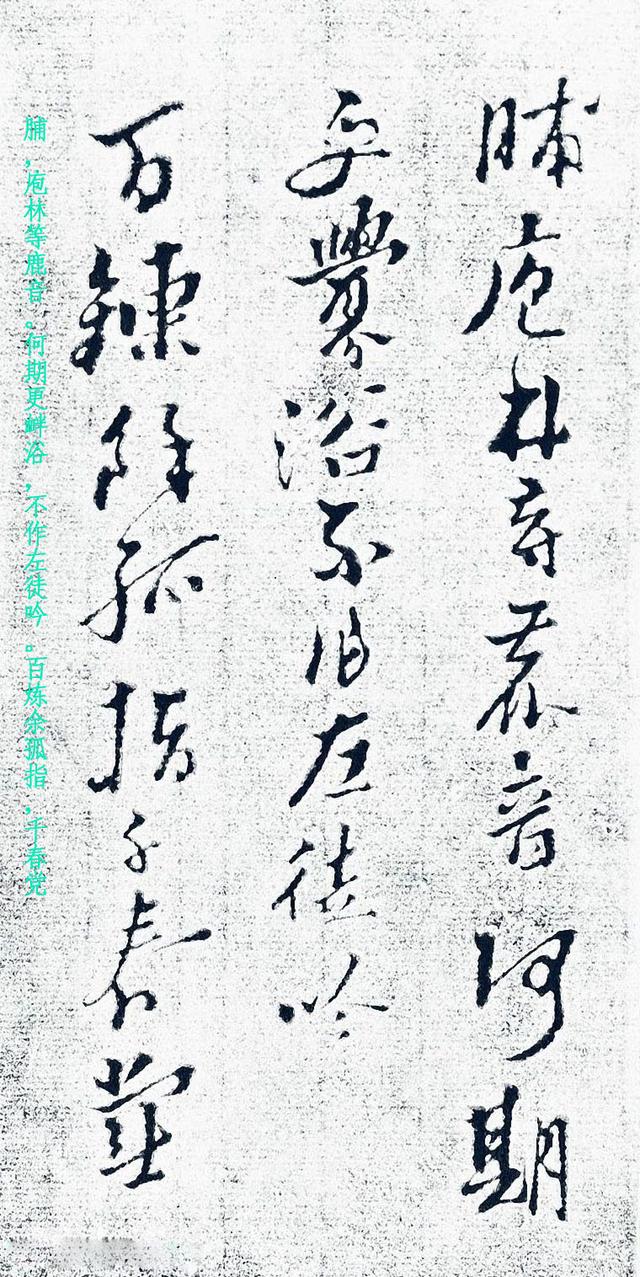 脯庖林等鹿音何期
更釁浴不作左徒吟
百鍊餘孤指千春黨
脯，庖林等鹿音。何期更衅浴，不作左徒吟。百炼余孤指，千春党